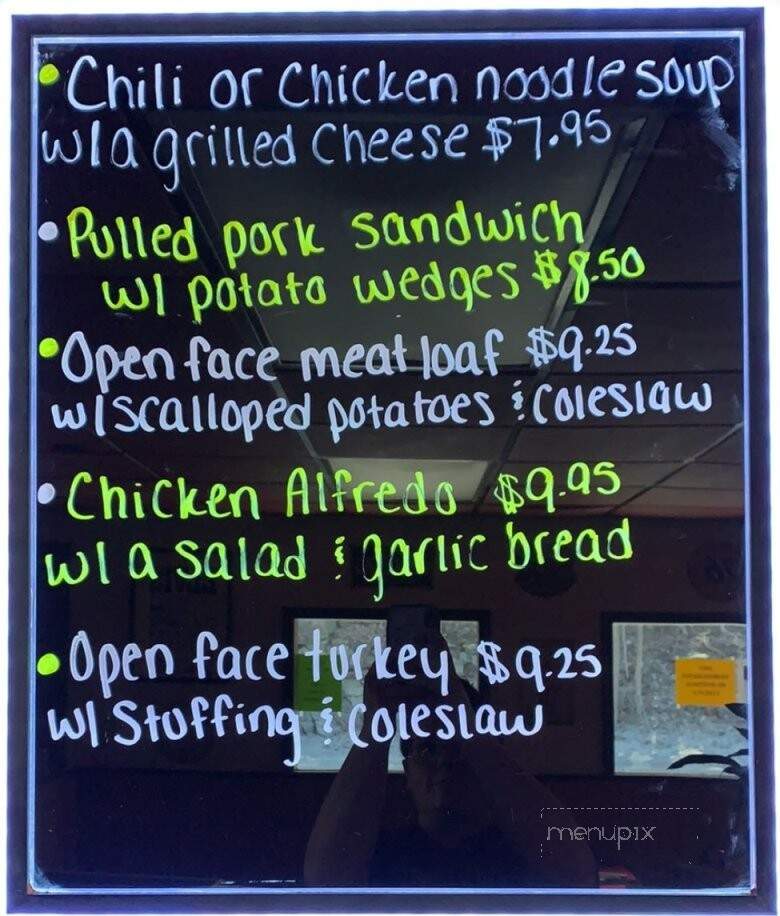 • Chili or Chicken noodle soup
w/a grilled Cheese $7.95
• Pulled pork sandwich
w/ potato wedges $8.50
• Open face meat loaf $9.25
w/scalloped potatoes & Coleslaw
• Chicken Alfredo $9.95
w/ a salad & garlic bread
• Open face turkey $9.25
w/ Stuffing & Coleslaw
menupix